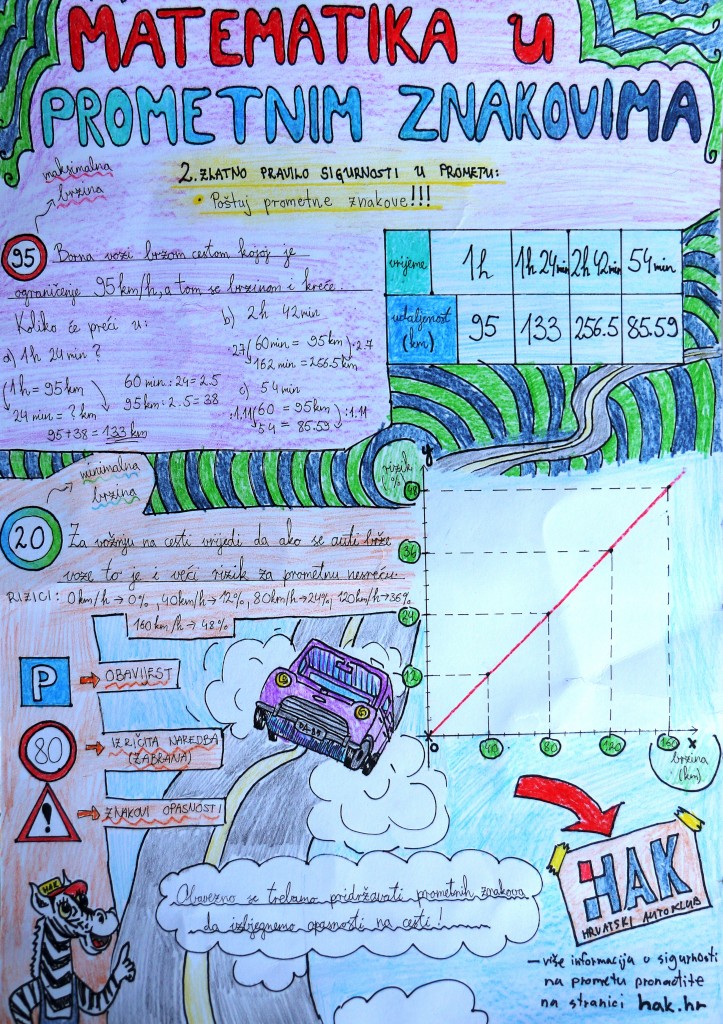 MATEMATIKA U
PROMETNIM ZNAKOVIMA
2. ZLATNO PRAVILO SIGURNOSTI U PROMETU:
• Poštuj prometne znakove!!!
maksimalna
brzina
95
Borna vozi brzom cestom kojoj je
ograničenje 95 km/h, a tom se brzinom i kreće.
Koliko će preći u:
a) 1h 24 min?
1h = 95 km
24 min = ? km
60 min : 24 = 2.5
95 km : 2.5 = 38
95 + 38 = 133 km
b) 2h 42 min
·2.7 60 min = 95 km ·2.7
162 min = 256.5 km
c) 54 min
:1.11 60 = 95 km :1.11
54 = 85.59
vrijeme 1h 1h 24 min 2h 42 min 54 min
udaljenost (km) 95 133 256.5 85.59
minimalna
brzina
20
Za vožnju na cesti vrijedi da ako se auti brže
voze to je i veći rizik za prometnu nesreću.
RIZICI: 0 km/h → 0%, 40 km/h → 12%, 80 km/h → 24%, 120 km/h → 36%
160 km/h → 48%
rizik
(%)
y
48
36
24
12
0
40
80
120
160
x
brzina
(km)
P
OBAVIJEST
80
IZRIČITA NAREDBA
(ZABRANA)
!
ZNAKOVI OPASNOSTI
HAK
HRVATSKI AUTOKLUB
HAK
Obavezno se trebamo pridržavati prometnih znakova
da izbjegnemo opasnosti na cesti!
– više informacija o sigurnosti
na prometu pronađite
na stranici hak.hr